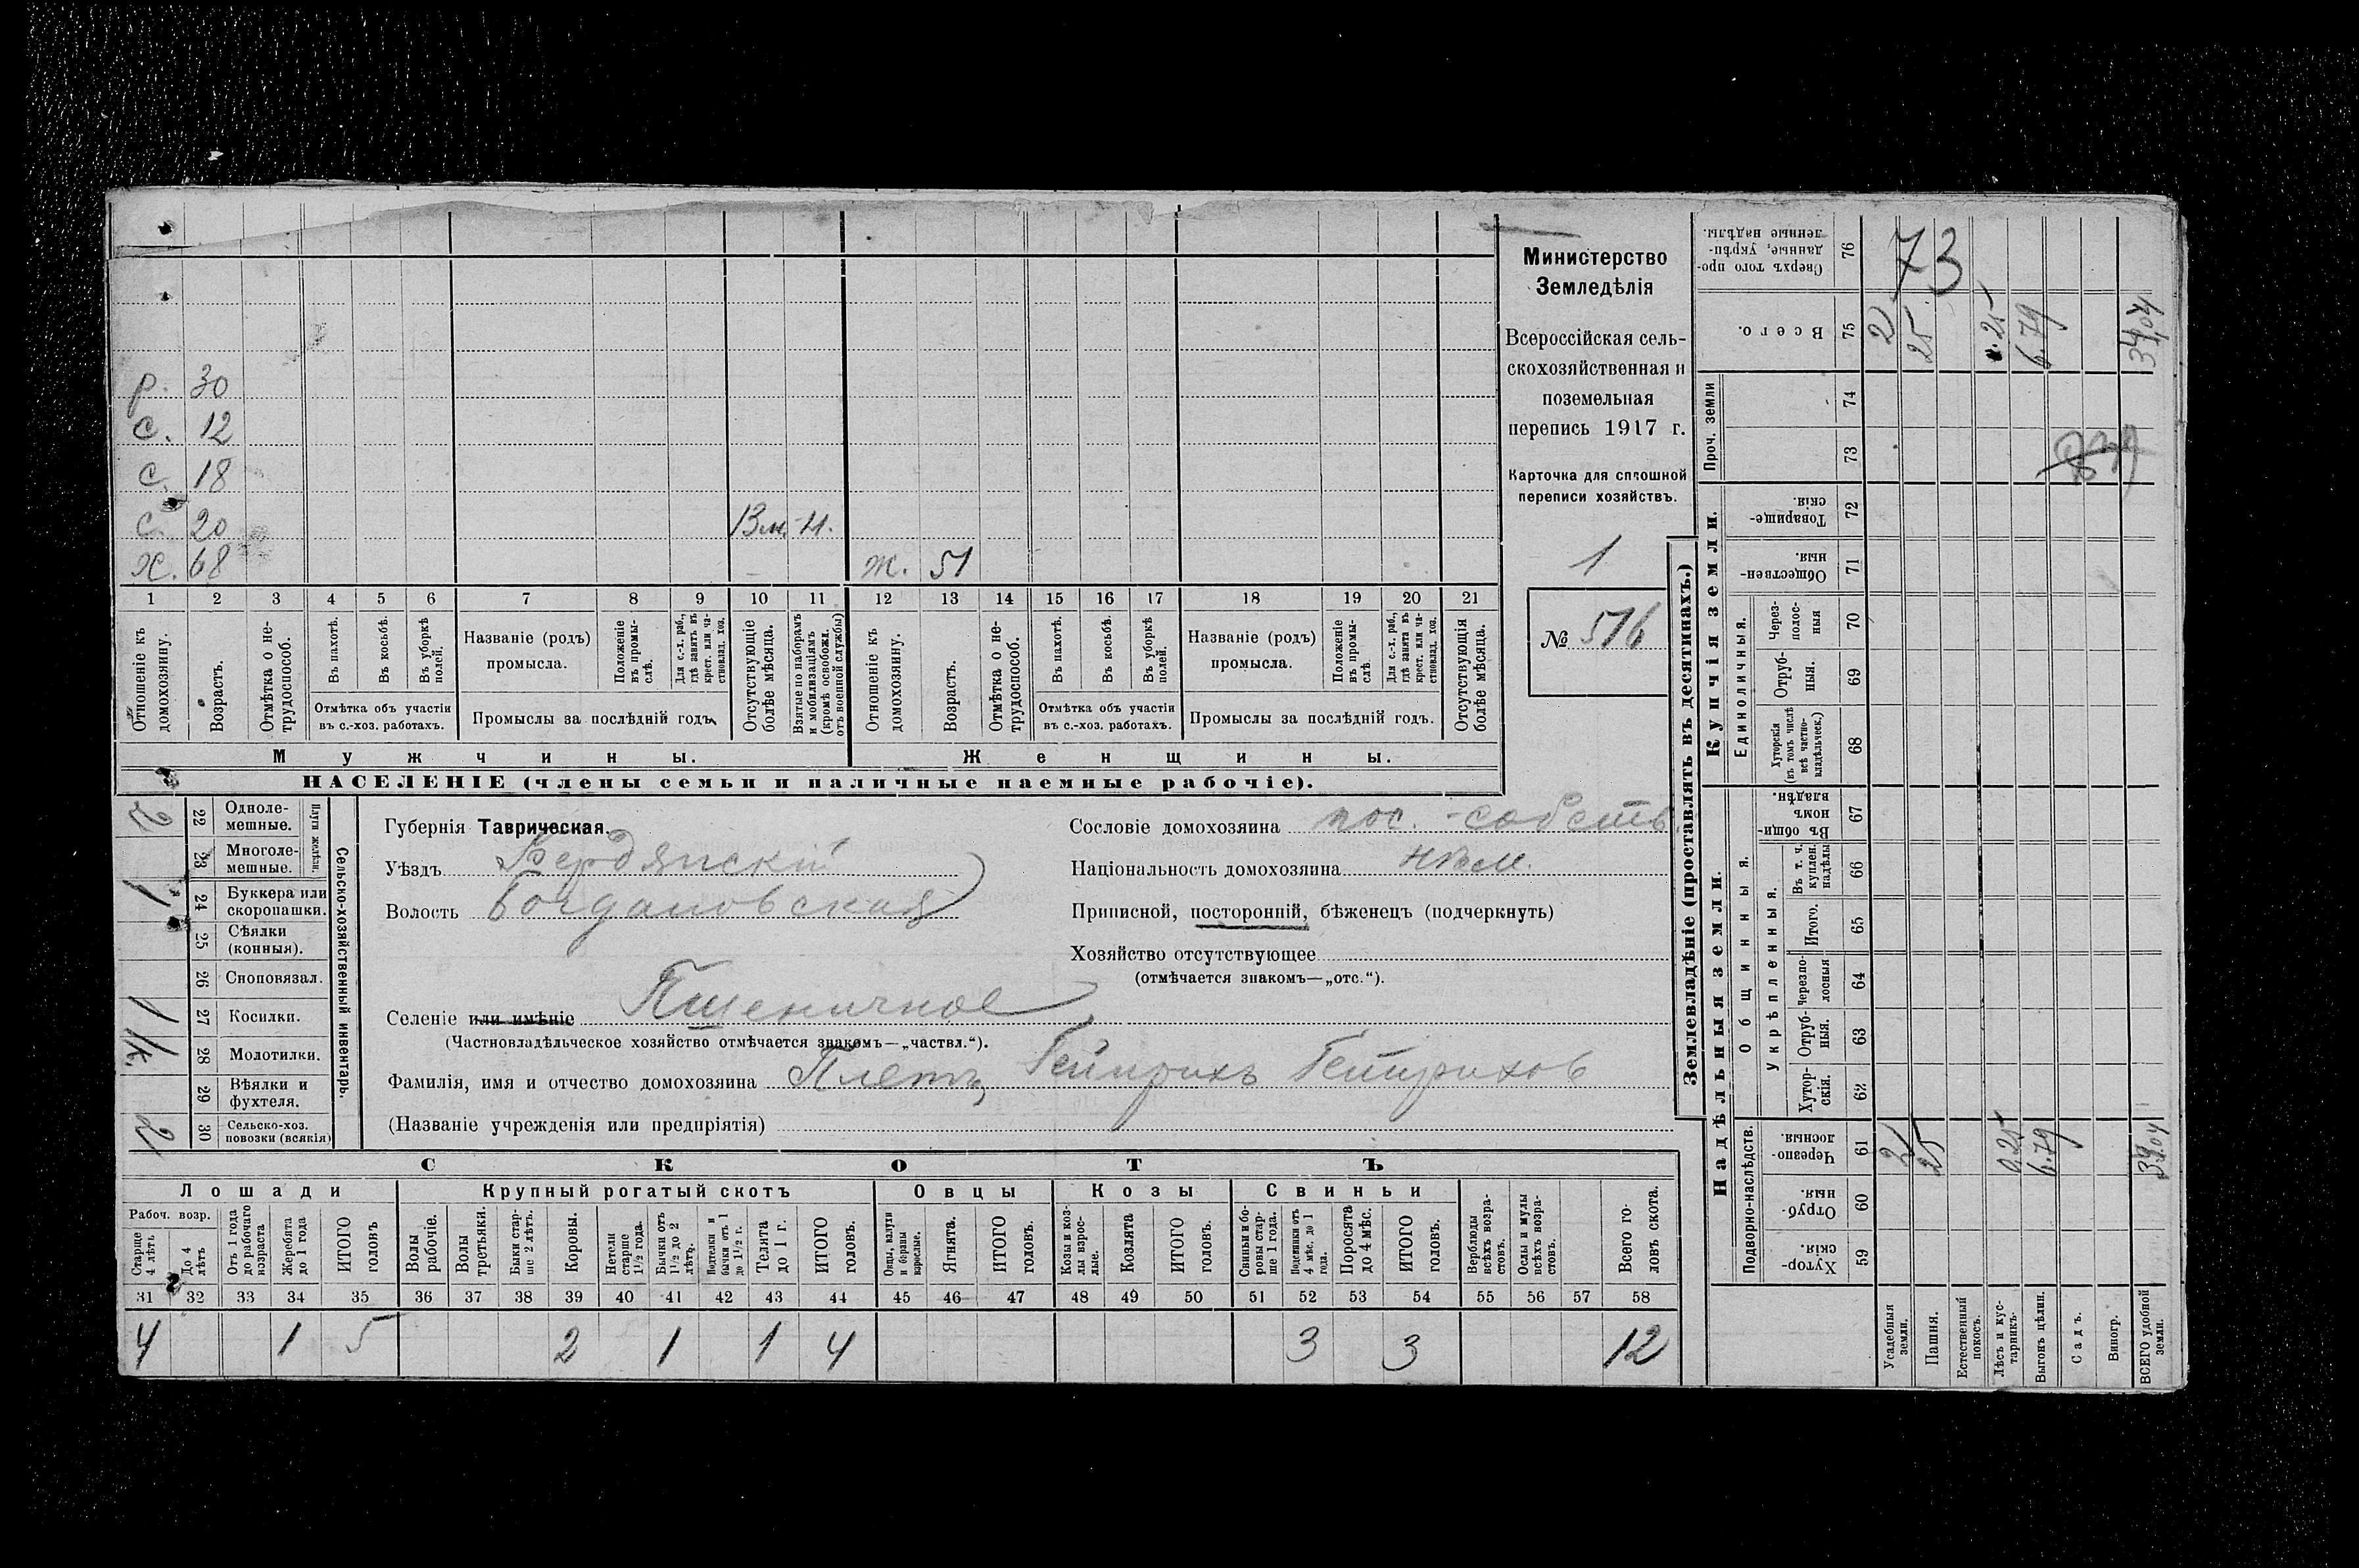 Министерство
Земледѣлія
Всероссійская сель-
скохозяйственная и
поземельная
перепись 1917 г.
Карточка для сплошной
переписи хозяйствъ.
1
№ 516
р. 30
с. 12
с. 18
с. 20 В м. -н.
х. 68 ж. 51
1 2 3 4 5 6 7 8 9 10 11 12 13 14 15 16 17 18 19 20 21
Отношеніе къ домохозяину.
Возрастъ.
Отмѣтка о не-трудоспособ.
Въ пахотѣ.
Въ косьбѣ.
Въ уборкѣ полей.
Отмѣтка объ участіи въ с.-хоз. работахъ.
Названіе (родъ) промысла.
Положеніе въ промы-слѣ.
Для с.-х. раб., гдѣ занятъ въ крест. или ча-стновлад. хоз.
Промыслы за послѣдній годъ.
Отсутствующіе болѣе мѣсяца.
Взятые по наборамъ и мобилизаціямъ (кромѣ освобожд. отъ военной службы)
Отношеніе къ домохозяину.
Возрастъ.
Отмѣтка о не-трудоспособ.
Въ пахотѣ.
Въ косьбѣ.
Въ уборкѣ полей.
Отмѣтка объ участіи въ с.-хоз. работахъ.
Названіе (родъ) промысла.
Положеніе въ промы-слѣ.
Для с.-х. раб., гдѣ занята въ крест. или ча-стновлад. хоз.
Промыслы за послѣдній годъ.
Отсутствующія болѣе мѣсяца.
Мужчины. Женщины.
НАСЕЛЕНІЕ (члены семьи и наличные наемные рабочіе).
Сельско-хозяйственный инвентарь.
Плуги желѣзн.
2 22 Одноле-мешные.
23 Многоле-мешные.
1 24 Буккера или скоропашки.
25 Сѣялки (конныя).
26 Сноповязал.
1 27 Косилки.
1/к. 28 Молотилки.
29 Вѣялки и фухтеля.
2 30 Сельско-хоз. повозки (всякія)
Губернія Таврическая.
Уѣздъ Бердянскій
Волость Богдановская
Селеніе или имѣніе Пшеничное
(Частновладѣльческое хозяйство отмѣчается знакомъ—„частвл.“).
Фамилія, имя и отчество домохозяина Плетъ, Гейнрихъ Гейнрихов
(Названіе учрежденія или предпріятія)
Сословіе домохозяина пос. -собств.
Національность домохозяина нѣм.
Приписной, посторонній, бѣженецъ (подчеркнуть)
Хозяйство отсутствующее
(отмѣчается знакомъ—„отс.“).
СКОТЪ
Лошади Крупный рогатый скотъ Овцы Козы Свиньи
Рабоч. возр.
Старше 4 лѣтъ
До 4 лѣтъ
Отъ 1 года до рабочаго возраста
Жеребята до 1 года
ИТОГО головъ
Волы рабочіе.
Волы третьяки.
Быки стар-ше 2 лѣтъ.
Коровы.
Нетели старше 1 1/2 года.
Бычки отъ 1 1/2 до 2 лѣтъ.
Подтелки и бычки отъ 1 до 1 1/2 г.
Телята до 1 г.
ИТОГО головъ.
Овцы, валухи и бараны взрослые.
Ягнята.
ИТОГО головъ.
Козы и коз-лы взрос-лые.
Козлята
ИТОГО головъ.
Свиньи и бо-ровы стар-ше 1 года.
Подсвинки отъ 4 мѣс. до 1 года.
Поросята до 4 мѣс.
ИТОГО головъ.
Верблюды всѣхъ возра-стовъ.
Ослы и мулы всѣхъ возра-стовъ.
Всего го-ловъ скота.
31 32 33 34 35 36 37 38 39 40 41 42 43 44 45 46 47 48 49 50 51 52 53 54 55 56 57 58
4 1 5 2 1 1 4 3 3 12
Землевладѣніе (проставлять въ десятинахъ.)
Сверхъ того про-данные, укрѣп-ленные надѣлы. 76 73
Всего. 75 2 25 0.25 6.79 34,04
Проч. земли
74
73
Купчія земли.
Товарище-скія. 72
Обществен-ныя. 71
Единоличныя.
Через-полос-ныя 70
Отруб-ныя. 69
Хуторскія (въ томъ числѣ всѣ частно-владѣльческ.) 68
Надѣльныя земли.
Общинныя.
Въ общи-номъ владѣн. 67
Укрѣпленныя.
Въ т. ч. куплен. надѣлы 66
Итого. 65
Черезпо-лосныя 64
Отруб-ныя. 63
Хутор-скія. 62
Подворно-наслѣдств.
Черезпо-лосныя. 61 2 25 0.25 6.79 34,04
Отруб-ныя. 60
Хутор-скія. 59
Усадебныя земли.
Пашня.
Естественный покосъ.
Лѣсъ и кус-тарникъ.
Выгонъ цѣлин.
Садъ.
Виногр.
ВСЕГО удобной земли.